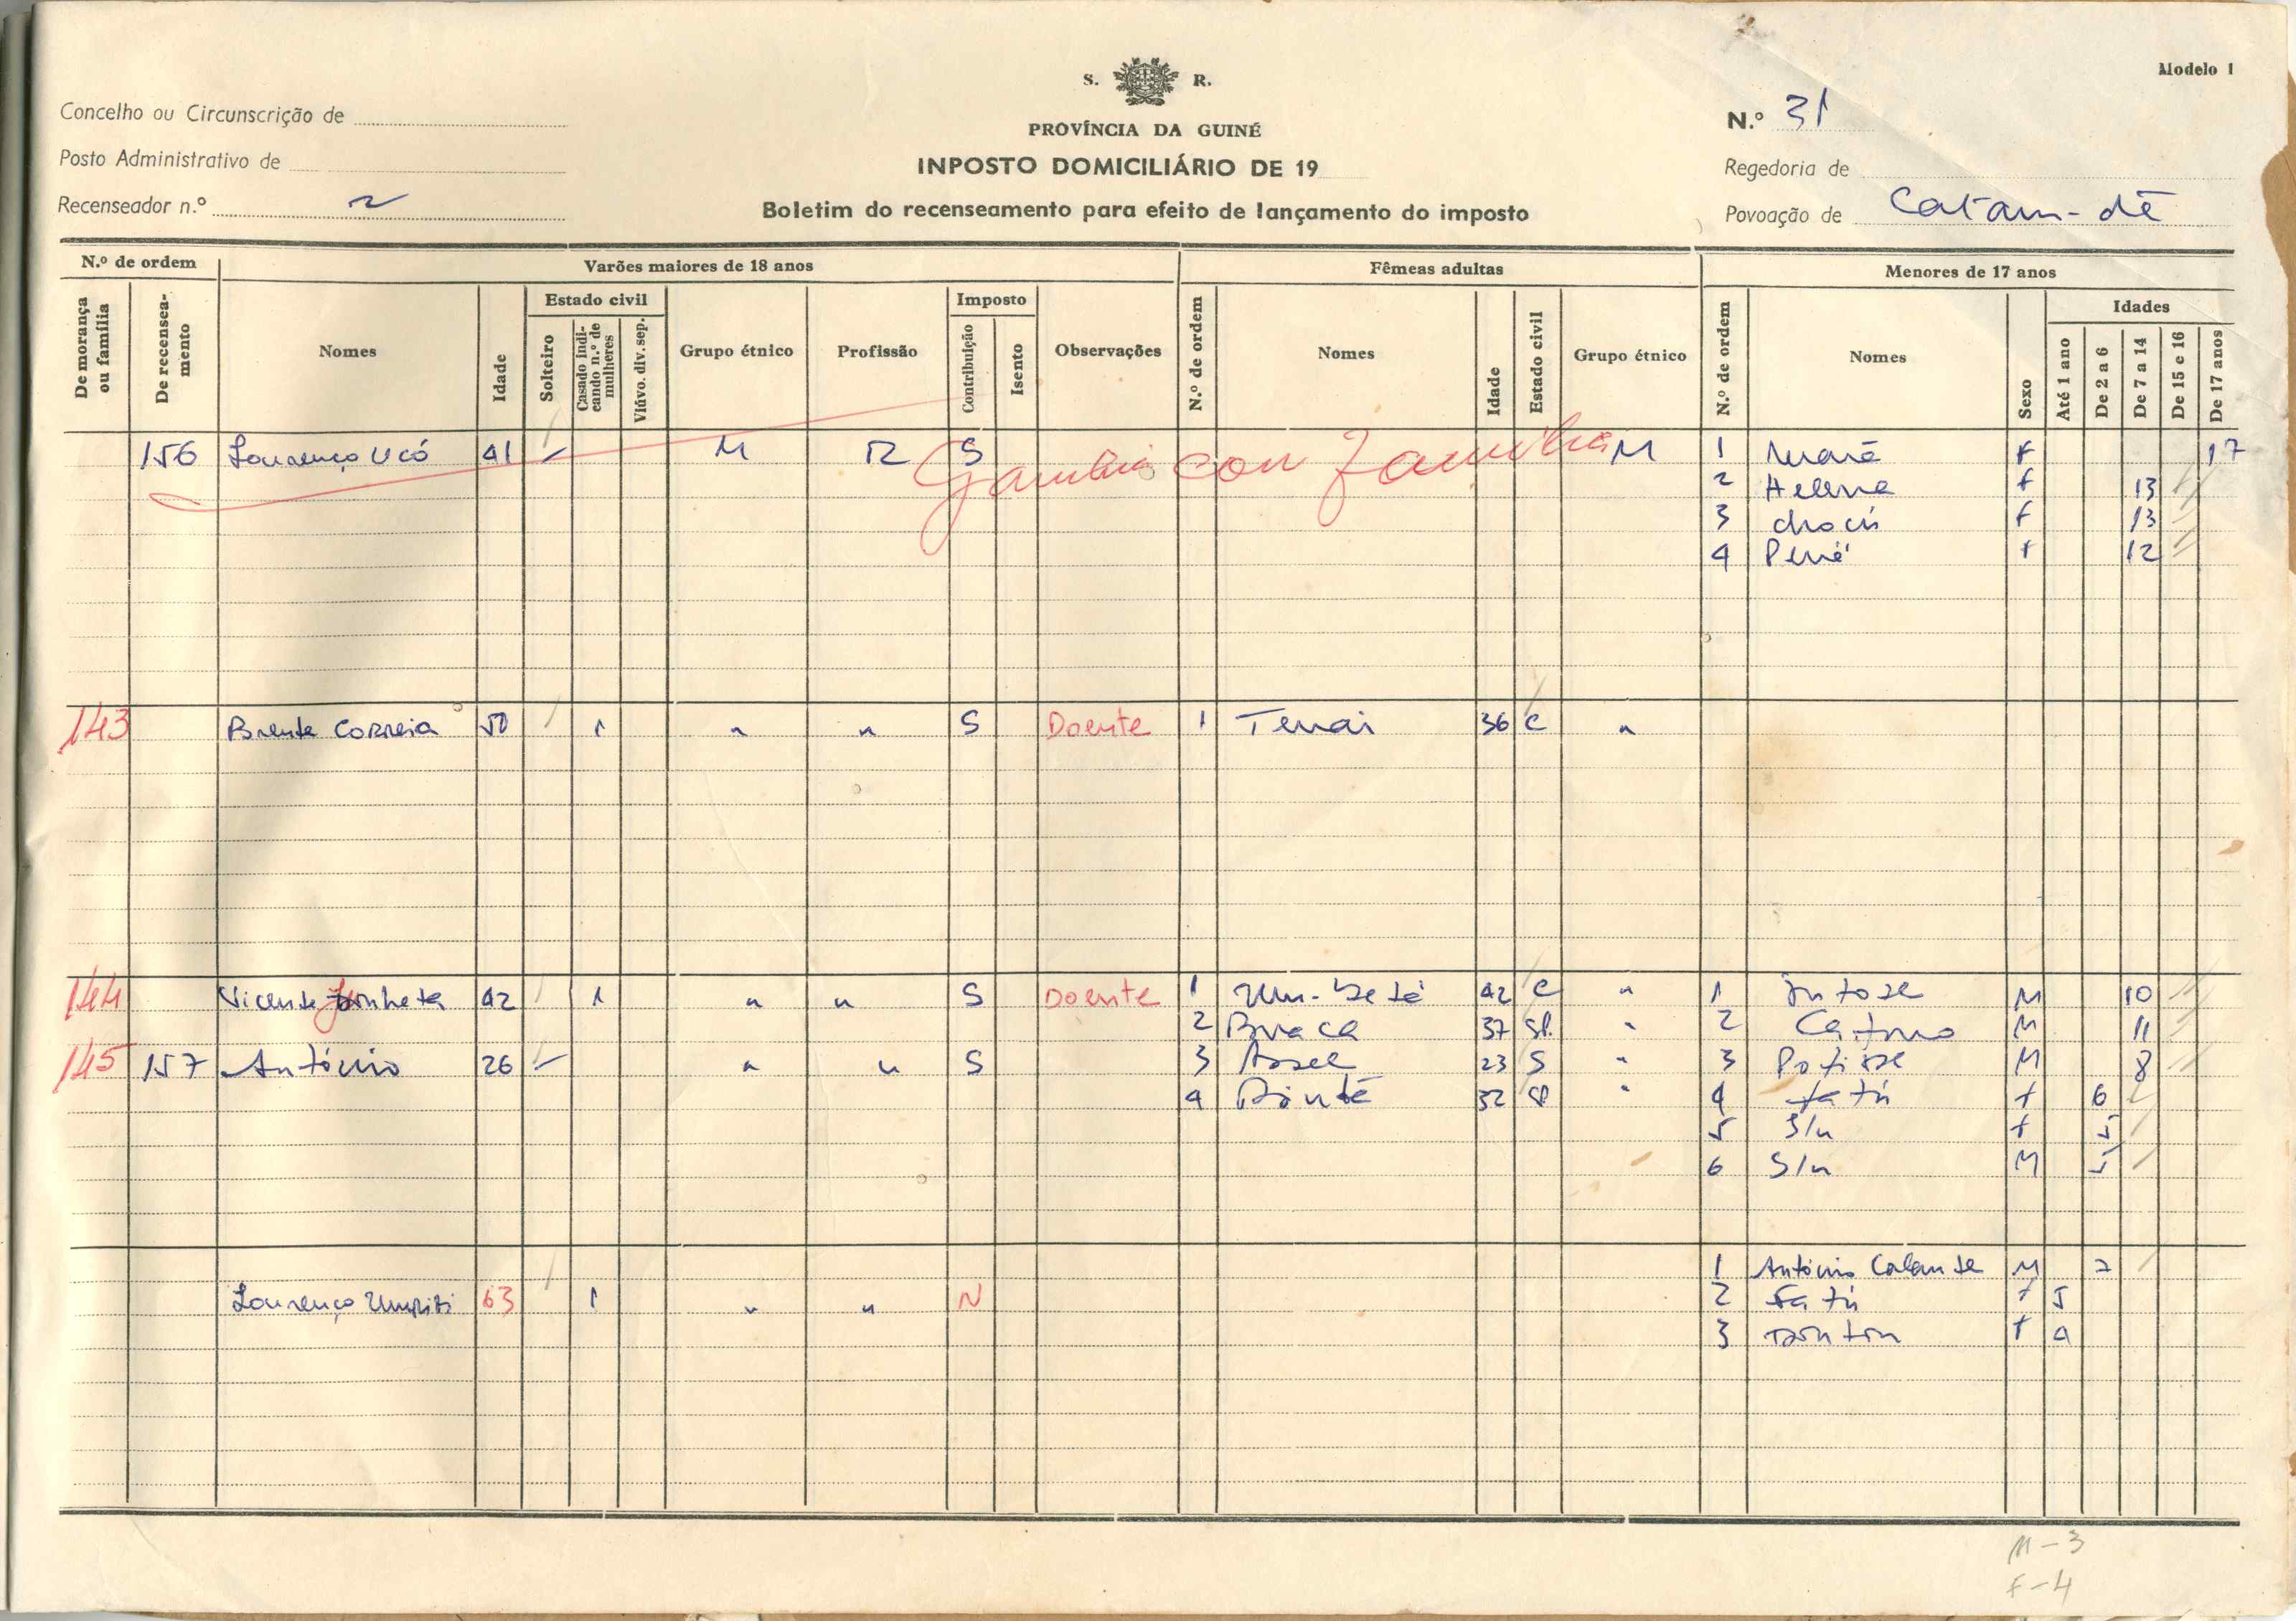 Modelo 1
S. R.
Concelho ou Circunscrição de
N.º 31
PROVÍNCIA DA GUINÉ
Posto Administrativo de
INPOSTO DOMICILIÁRIO DE 19
Regedoria de
Recenseador n.º 2
Boletim do recenseamento para efeito de lançamento do imposto
Povoação de Catam-dé
N.º de ordem
Varões maiores de 18 anos
Fêmeas adultas
Menores de 17 anos
De morança ou família
De recensea-mento
Nomes
Idade
Estado civil
Solteiro
Casado indi-cando n.º de mulheres
Viúvo. div. sep.
Grupo étnico
Profissão
Imposto
Contribuição
Isento
Observações
N.º de ordem
Nomes
Idade
Estado civil
Grupo étnico
N.º de ordem
Nomes
Sexo
Idades
Até 1 ano
De 2 a 6
De 7 a 14
De 15 e 16
De 17 anos
156 Lourenço Ucó 41 M R S Gambia con familia M 1 F 17
2 Helena F 13
3 F 13
4 F 12
143 Correia 50 1 " " S Doente 1 Tenai 36 C "
144 Vicente 42 1 " " S Doente 1 42 C " 1 M 10
2 37 " 2 M 11
145 157 António 26 " " S 3 23 S " 3 M 8
4 32 " 4 Fatú F 6
5 S/n F 5
6 S/n M 5
1 António M 2
Lourenço 63 1 " " N 2 Fatú F 5
3 F 4
M-3
F-4